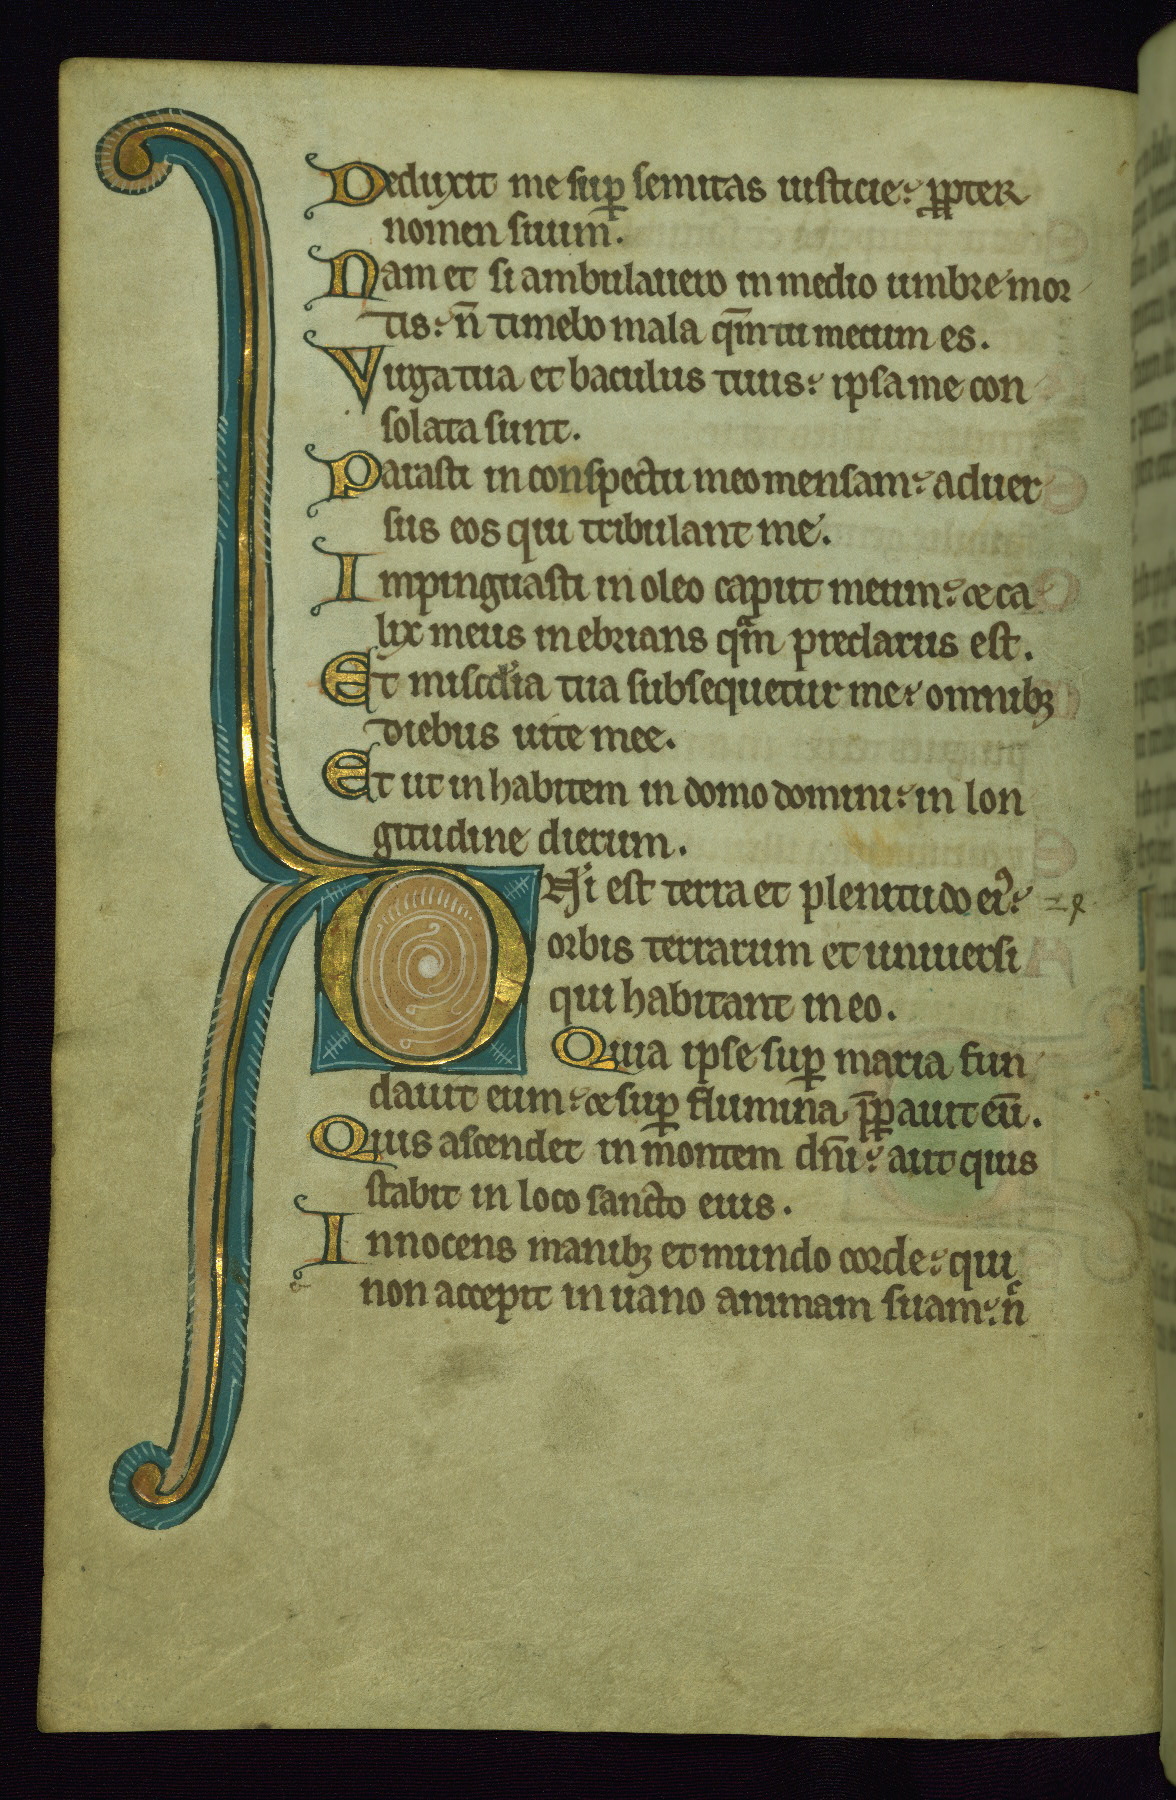 Deduxit me sup̱ semitas iusticie: ꝓpter
nomen suum.
Nam et si ambulauero in medio umbre mor
tis: n̄ timebo mala qm̄ tu mecum es.
Virga tua et baculus tuus: ipsa me con
solata sunt.
Parasti in conspectu meo mensam: aduer
sus eos qui tribulant me.
Impinguasti in oleo caput meum: et ca
lix meus inebrians qm̄ preclarus est.
Et misc̄dia tua subsequetur me: omnibꝫ
diebus uite mee.
Et ut inhabitem in domo domini: in lon
gitudine dierum.
Dn̄i est terra et plenitudo eiꝰ:
orbis terrarum et uniuersi
qui habitant in eo.
Quia ipse suꝑ maria fun
dauit eum: et suꝑ flumina p̄ꝑauit eū.
Quis ascendet in montem dn̄i: aut quis
stabit in loco sancto eius.
Innocens manibꝫ et mundo corde: qui
non accepit in uano animam suam: n̄